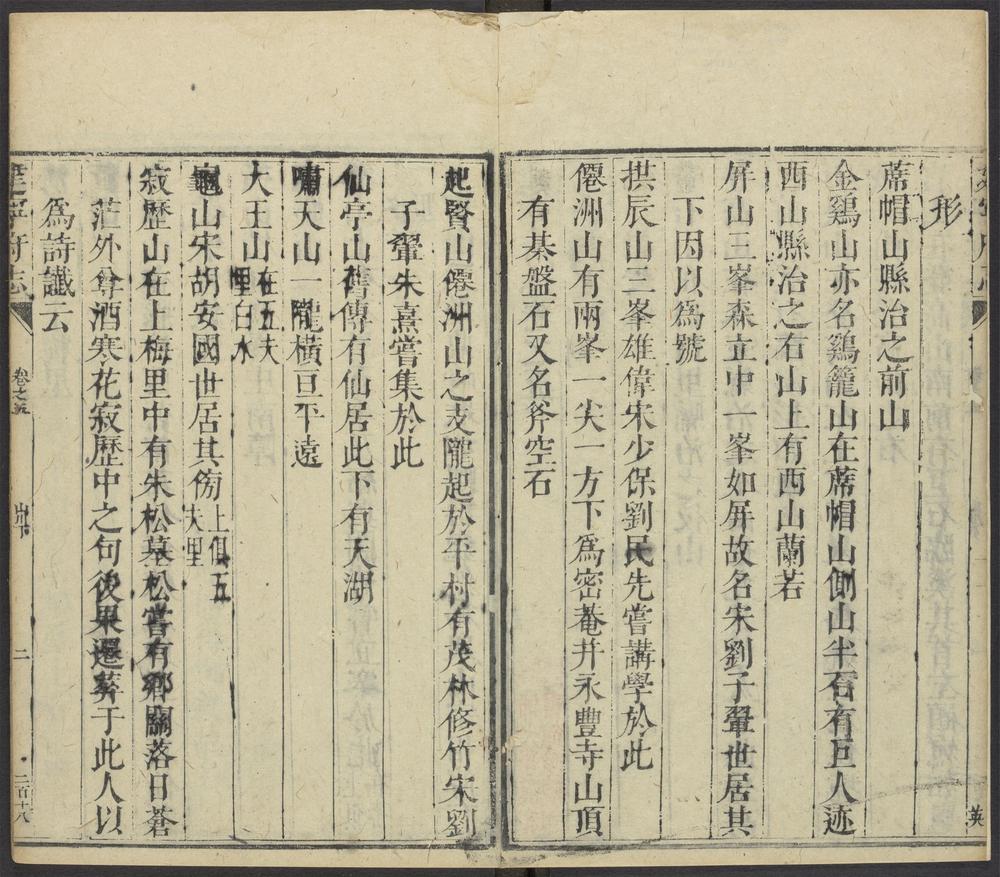 形
蓆帽山縣治之前山
金鷄山亦名鷄籠山在蓆帽山側山半石有巨人迹
西山縣治之右山上有西山蘭若
屏山三峯森立中一峯如屏故名宋劉子翬世居其
下因以爲號
拱辰山三峯雄偉宋少保劉民先嘗講學於此
僊洲山有兩峯一尖一方下爲密菴井永豐寺山頂
有棊盤石又名斧空石
英
起賢山僊洲山之支隴起於平村有茂林修竹宋劉
子翬朱熹嘗集於此
仙亭山舊傳有仙居此下有天湖
嘯天山一隴橫亘平遠
大王山在五夫
里白水
龜山宋胡安國世居其傍上俱五
夫里
寂歷山在上梅里中有朱松墓松嘗有鄉關落日蒼
茫外尊酒寒花寂歷中之句後果遷葬于此人以
爲詩讖云
建寧府志
卷之五
山下
二
二百十八